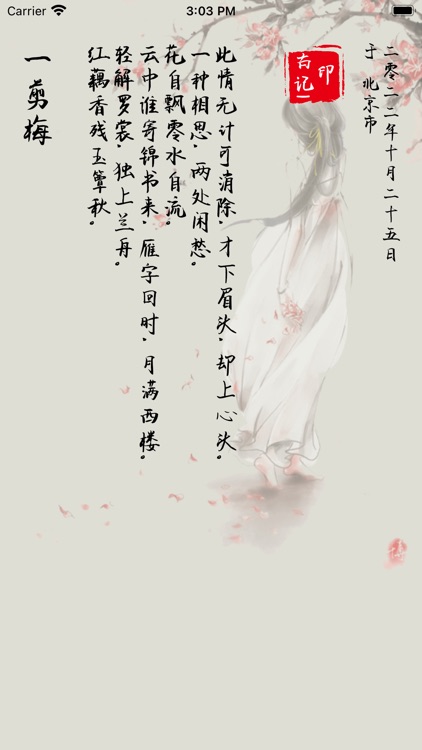 Carrier 3:03 PM
一剪梅
红藕香残玉簟秋。
轻解罗裳，独上兰舟。
云中谁寄锦书来，雁字回时，月满西楼。
花自飘零水自流。
一种相思，两处闲愁。
此情无计可消除，才下眉头，却上心头。
印
古记
于 北京市
二零二二年十月二十五日